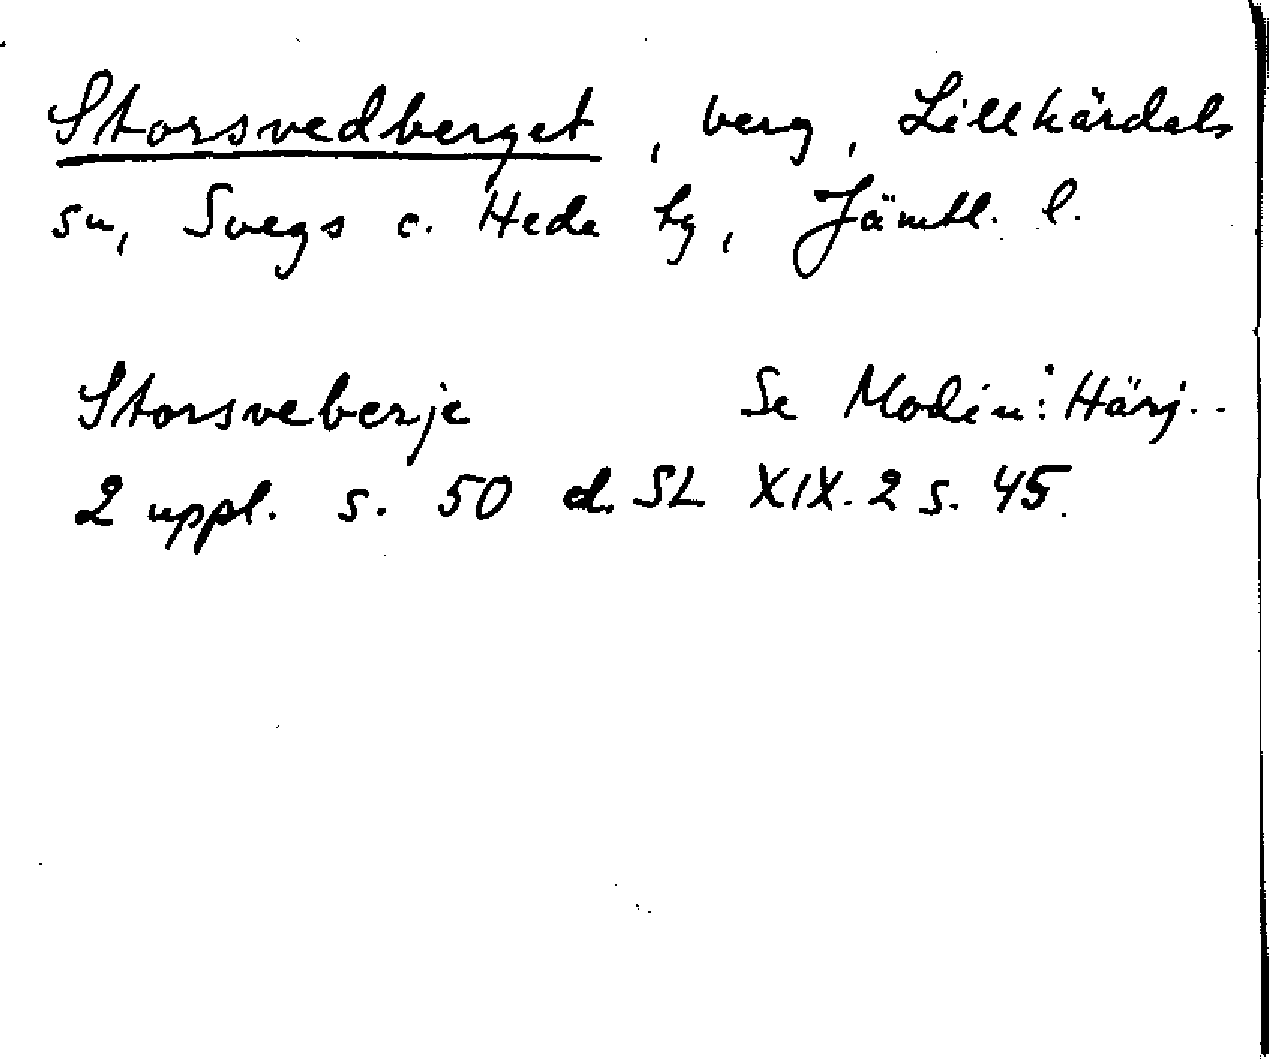 Storsvedberget, berg, Lillhärdals
sn, Svegs o. Hede tg, Jämtl. l.
Storsveberje Se Modin: Härj..
2 uppl. s. 50 d. SL XIX. 2 s. 45.